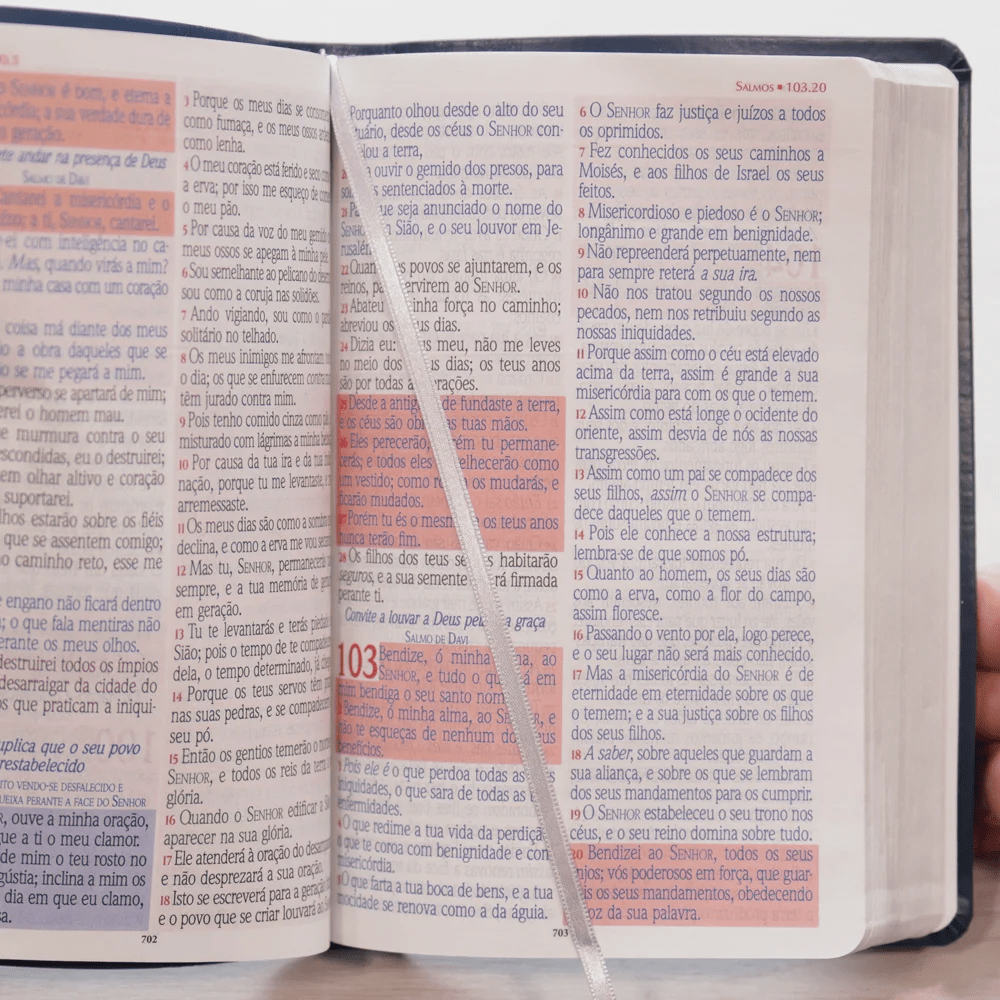 0.5
SENHOR é bom, e eterna a
a sua verdade dura de
geração.
andar na presença de Deus
SALMO DE DAVI
a misericórdia e o
a ti, SENHOR, cantarei.
com inteligência no ca-
Mas, quando virás a mim?
minha casa com um coração
coisa má diante dos meus
a obra daqueles que se
se me pegará a mim.
perverso se apartará de mim;
o homem mau.
murmura contra o seu
escondidas, eu o destruirei;
olhar altivo e coração
suportarei.
olhos estarão sobre os fiéis
que se assentem comigo;
caminho reto, esse me
engano não ficará dentro
o que fala mentiras não
perante os meus olhos.
destruirei todos os ímpios
desarraigar da cidade do
os que praticam a iniqui-
suplica que o seu povo
restabelecido
VENDO-SE DESFALECIDO E
QUEIXA PERANTE A FACE DO SENHOR
ouve a minha oração,
a ti o meu clamor.
de mim o teu rosto no
inclina a mim os
dia em que eu clamo,
702
3 Porque os meus dias se
como fumaça, e os meus ossos
como lenha.
4 O meu coração está ferido e seco
a erva; por isso me esqueço de
o meu pão.
5 Por causa da voz do meu
meus ossos se apegam à minha
6 Sou semelhante ao pelicano do
sou como a coruja nas solidões.
7 Ando vigiando, sou como o
solitário no telhado.
8 Os meus inimigos me afrontam
o dia; os que se enfurecem contra
têm jurado contra mim.
9 Pois tenho comido cinza como
misturado com lágrimas a minha
10 Por causa da tua ira e da tua
nação, porque tu me levantaste
arremessaste.
11 Os meus dias são como a sombra
declina, e como a erva me vou
12 Mas tu, SENHOR,
sempre, e a tua memória de
em geração.
13 Tu te levantarás e terás
Sião; pois o tempo de te
dela, o tempo determinado, já
14 Porque os teus servos têm
nas suas pedras, e se
seu pó.
15 Então os gentios temerão o
SENHOR, e todos os reis da terra
glória.
16 Quando o SENHOR edificar
aparecer na sua glória.
17 Ele atenderá à oração do
e não desprezará a sua oração.
18 Isto se escreverá para a geração
e o povo que se criar louvará ao
SALMOS ▪ 103.20
Porquanto olhou desde o alto do seu
desde os céus o SENHOR con-
a terra,
ouvir o gemido dos presos, para
sentenciados à morte.
21 seja anunciado o nome do
Sião, e o seu louvor em Je-
22 povos se ajuntarem, e os
reinos, servirem ao SENHOR.
23 Abateu minha força no caminho;
abreviou os dias.
24 Dizia eu: meu, não me leves
no meio dos dias; os teus anos
são por todas gerações.
25 Desde a fundaste a terra,
e os céus são tuas mãos.
26 Eles perecerão, tu permane-
cerás; e todos eles como
um vestido; como os mudarás, e
ficarão mudados.
27 Porém tu és o mesmo, os teus anos
nunca terão fim.
28 Os filhos dos teus habitarão
seguros, e a sua semente firmada
perante ti.
Convite a louvar a Deus graça
SALMO DE DAVI
103 Bendize, ó minha ao
SENHOR, e tudo o em
mim bendiga o seu santo
2 Bendize, ó minha alma, ao e
não te esqueças de nenhum
benefícios.
3 Pois ele é o que perdoa todas as
iniquidades, o que sara de todas as
enfermidades.
4 O que redime a tua vida da
e te coroa com benignidade e
misericórdia.
5 O que farta a tua boca de bens, e a tua
mocidade se renova como a da águia.
703
6 O SENHOR faz justiça e juízos a todos
os oprimidos.
7 Fez conhecidos os seus caminhos a
Moisés, e aos filhos de Israel os seus
feitos.
8 Misericordioso e piedoso é o SENHOR;
longânimo e grande em benignidade.
9 Não repreenderá perpetuamente, nem
para sempre reterá a sua ira.
10 Não nos tratou segundo os nossos
pecados, nem nos retribuiu segundo as
nossas iniquidades.
11 Porque assim como o céu está elevado
acima da terra, assim é grande a sua
misericórdia para com os que o temem.
12 Assim como está longe o ocidente do
oriente, assim desvia de nós as nossas
transgressões.
13 Assim como um pai se compadece dos
seus filhos, assim o SENHOR se compa-
dece daqueles que o temem.
14 Pois ele conhece a nossa estrutura;
lembra-se de que somos pó.
15 Quanto ao homem, os seus dias são
como a erva, como a flor do campo,
assim floresce.
16 Passando o vento por ela, logo perece,
e o seu lugar não será mais conhecido.
17 Mas a misericórdia do SENHOR é de
eternidade em eternidade sobre os que
o temem; e a sua justiça sobre os filhos
dos seus filhos.
18 A saber, sobre aqueles que guardam a
sua aliança, e sobre os que se lembram
dos seus mandamentos para os cumprir.
19 O SENHOR estabeleceu o seu trono nos
céus, e o seu reino domina sobre tudo.
20 Bendizei ao SENHOR, todos os seus
anjos; vós poderosos em força, que guar-
dais os seus mandamentos, obedecendo
voz da sua palavra.